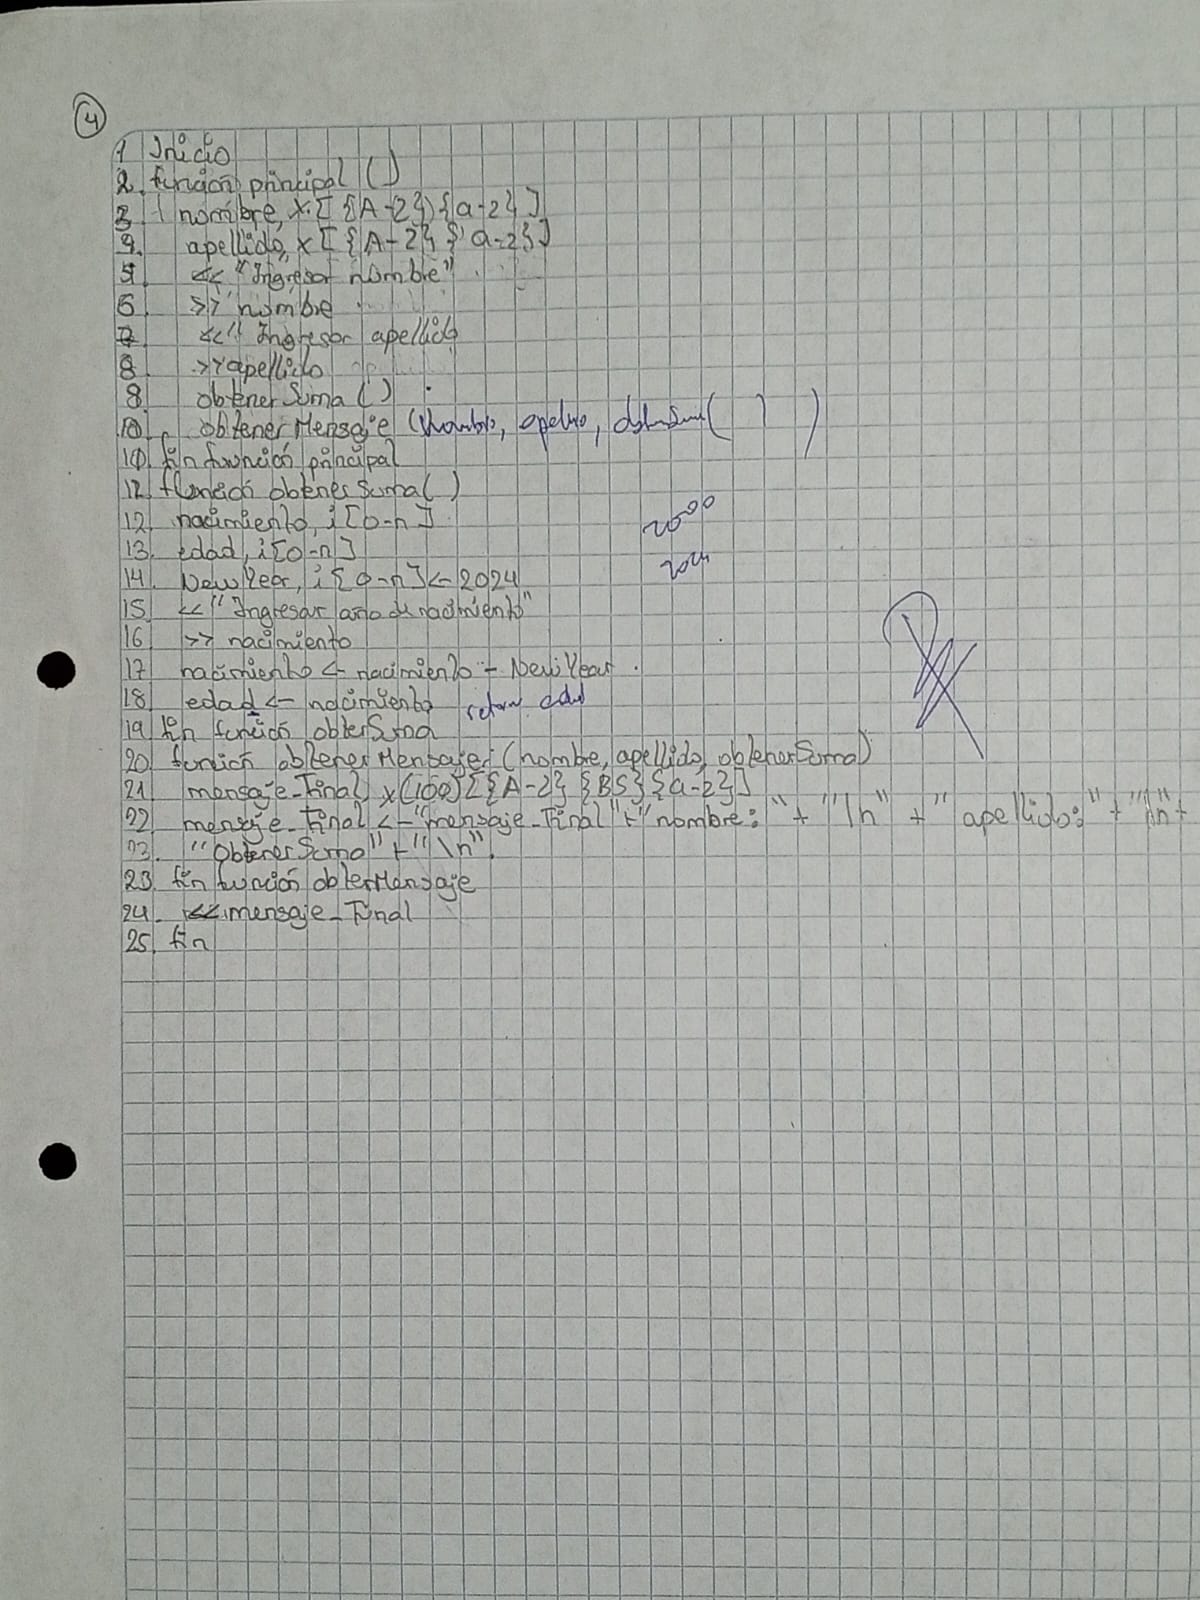 4
1 Inicio
2. función principal ( )
3 nombre, x. [ {A-Z} {a-z} ]
4. apellido, x [ {A-Z} { a-z} ]
5 << "Ingresar nombre"
6 >> nombre
7 <<" Ingresar apellido
8 >> apellido
8 obtenerSuma ( )
10 obtenerMensaje (Nombre, apellido, obtenSuma( ) )
10 fin función principal
12 función obtenerSuma( )
12 nacimiento, i [0-n]
2000
13. edad, i [0-n]
2024
14. NewYear, i [0-n] <- 2024
15 << "Ingresar año de nacimiento"
16 >> nacimiento
17 nacimiento <- nacimiento - NewYear
18 edad <- nacimiento return edad
19 fin función obterSuma
20 función obtenerMensaje (nombre, apellido, obtenerSuma)
21 mensaje_Final, x (100) [{A-Z} {BS} {a-z}]
22 mensaje_Final <- "mensaje_Final" + " nombre: " + "\n" + " apellido: " + "\n" +
23. "ObtenerSuma" + "\n".
23. fin función obterMensaje
24. << mensaje_Final
25. fin